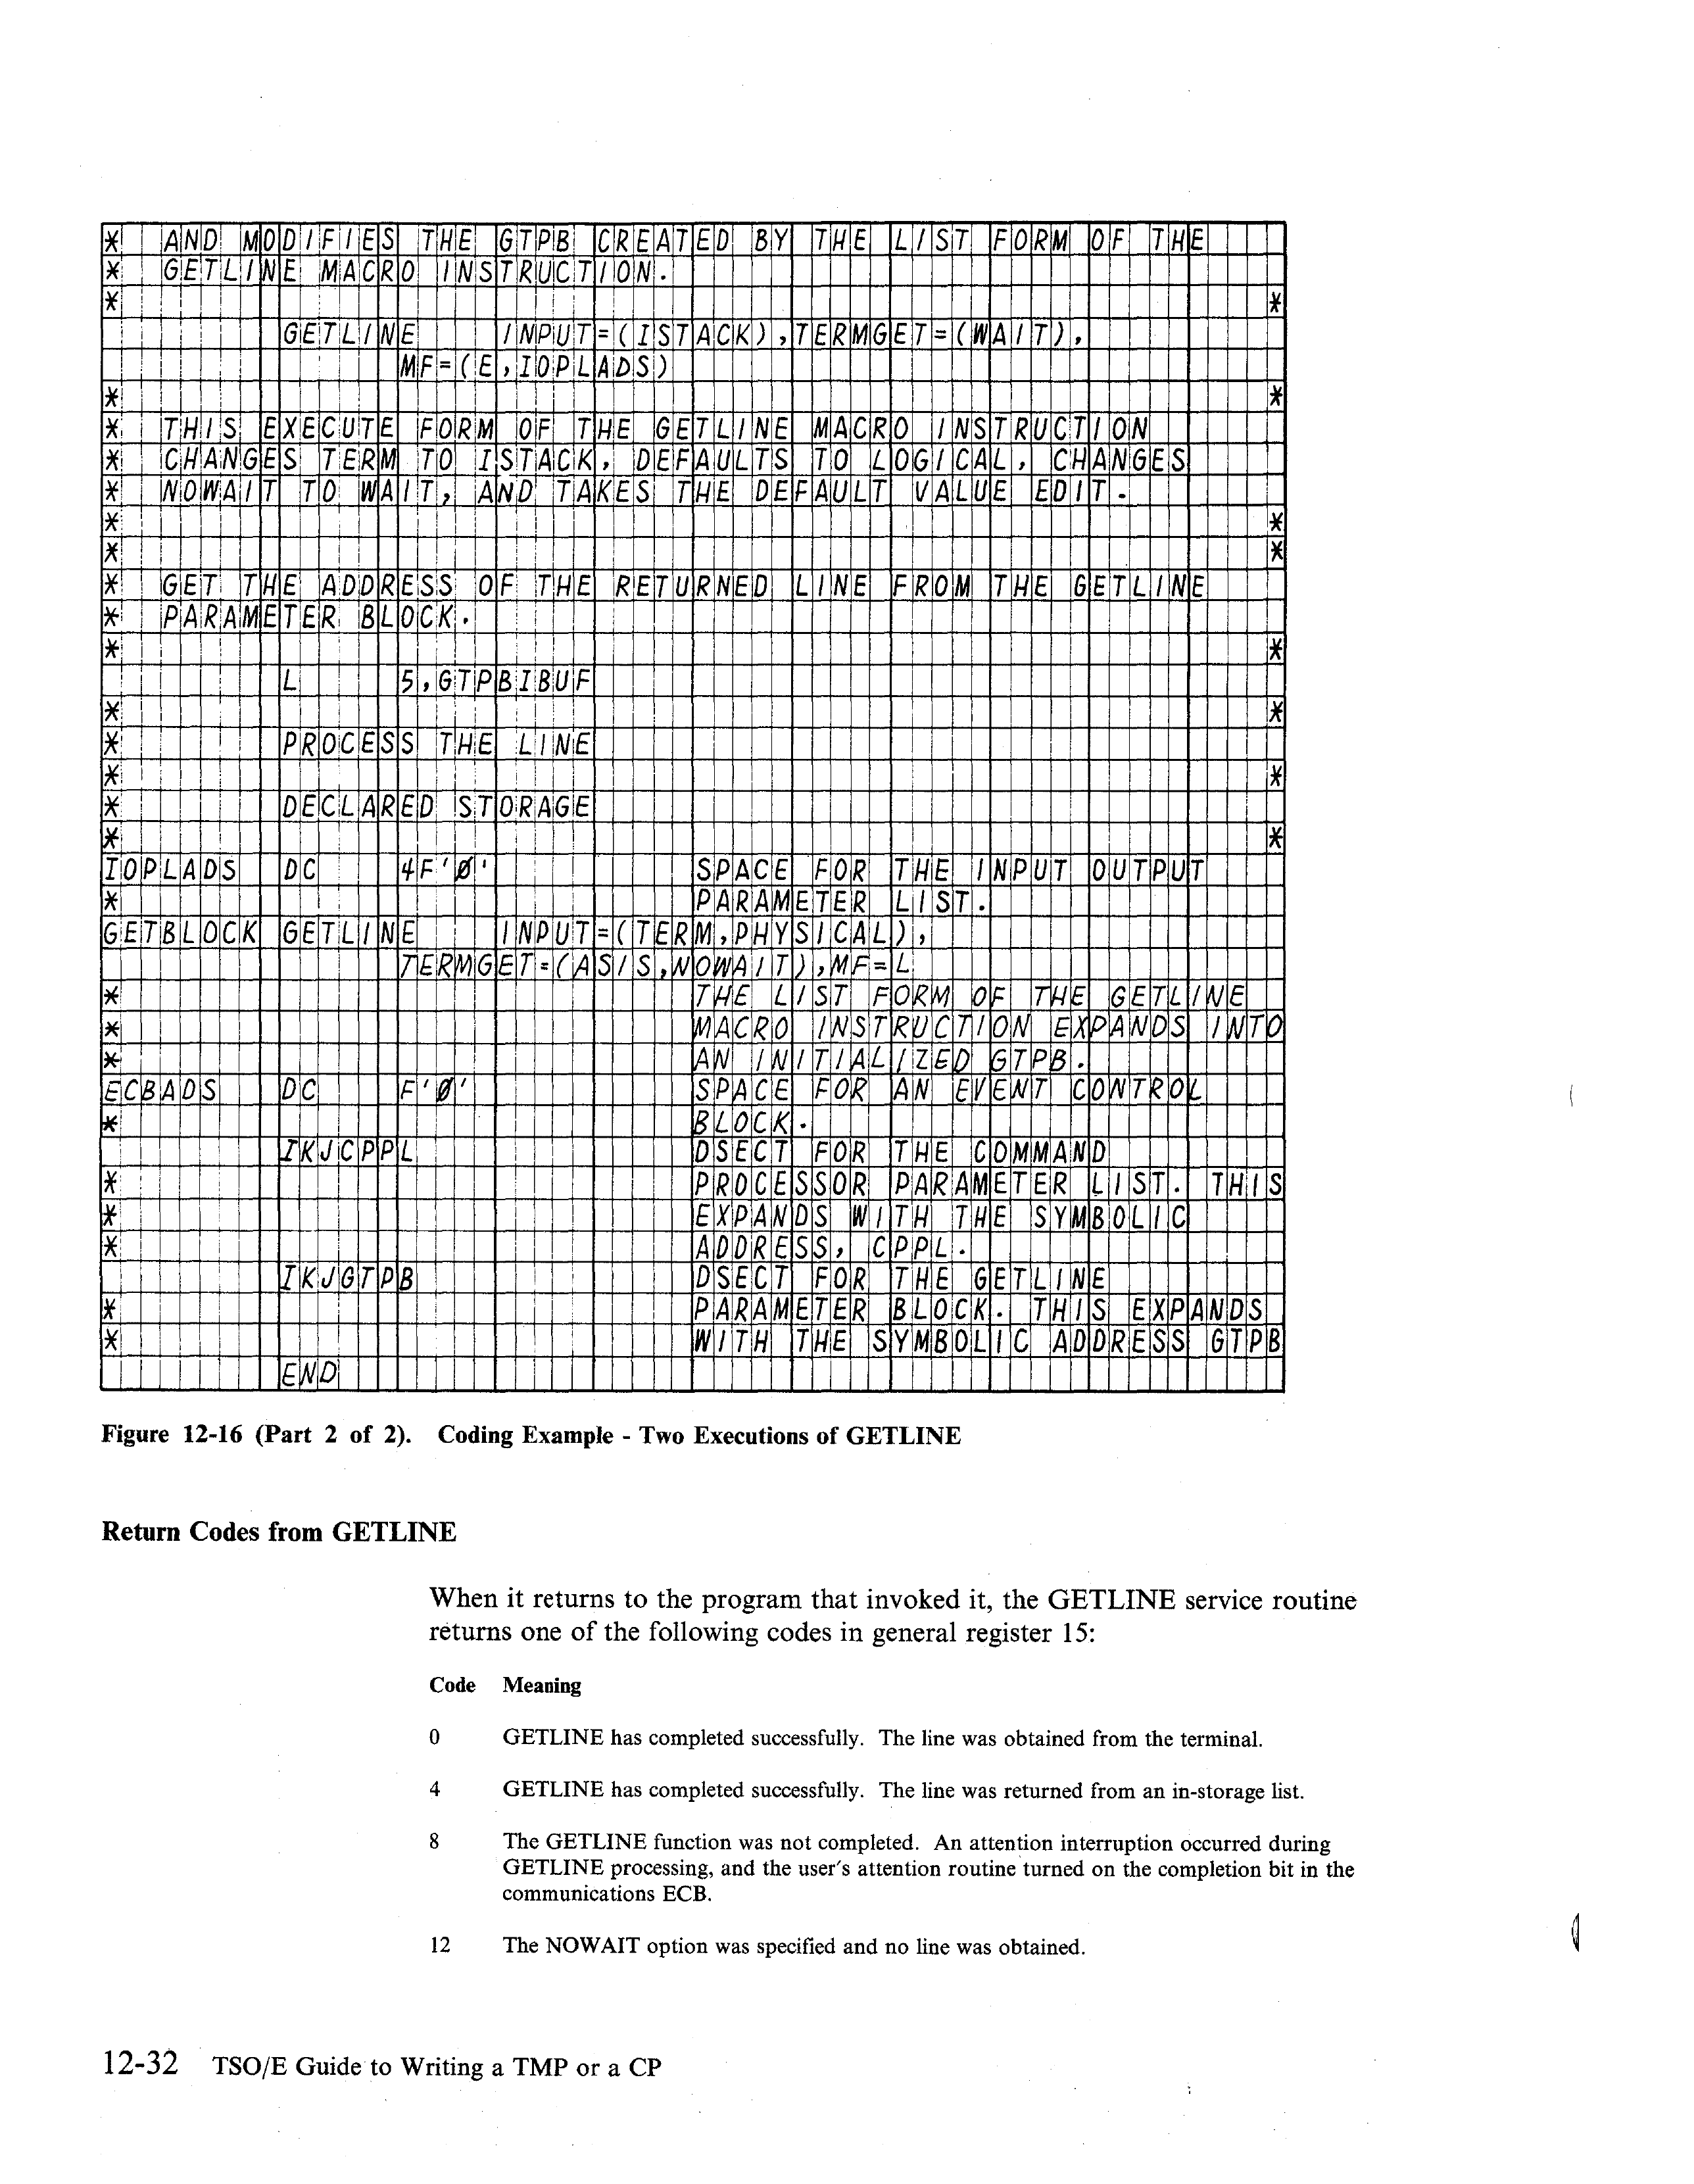 *  AND MODIFIES THE GTPB CREATED BY THE LIST FORM OF THE
*  GETLINE MACRO INSTRUCTION.
*                                                          *
         GETLINE    INPUT=(ISTACK),TERMGET=(WAIT),
               MF=(E,IOPLADS)
*                                                          *
*  THIS EXECUTE FORM OF THE GETLINE MACRO INSTRUCTION
*  CHANGES TERM TO ISTACK, DEFAULTS TO LOGICAL, CHANGES
*  NOWAIT TO WAIT, AND TAKES THE DEFAULT VALUE EDIT.
*                                                          *
*                                                          *
*  GET THE ADDRESS OF THE RETURNED LINE FROM THE GETLINE
*  PARAMETER BLOCK.
*                                                          *
         L     5,GTPBIBUF
*                                                          *
*        PROCESS THE LINE
*                                                          *
*        DECLARED STORAGE
*                                                          *
IOPLADS  DC    4F'0'          SPACE FOR THE INPUT OUTPUT
*                             PARAMETER LIST.
GETBLOCK GETLINE    INPUT=(TERM,PHYSICAL),
               TERMGET=(ASIS,NOWAIT),MF=L
*                             THE LIST FORM OF THE GETLINE
*                             MACRO INSTRUCTION EXPANDS INTO
*                             AN INITIALIZED GTPB.
ECBADS   DC    F'0'           SPACE FOR AN EVENT CONTROL
*                             BLOCK.
         IKJCPPL              DSECT FOR THE COMMAND
*                             PROCESSOR PARAMETER LIST. THIS
*                             EXPANDS WITH THE SYMBOLIC
*                             ADDRESS, CPPL.
         IKJGTPB              DSECT FOR THE GETLINE
*                             PARAMETER BLOCK. THIS EXPANDS
*                             WITH THE SYMBOLIC ADDRESS GTPB
         END
Figure 12-16 (Part 2 of 2). Coding Example - Two Executions of GETLINE
Return Codes from GETLINE
When it returns to the program that invoked it, the GETLINE service routine
returns one of the following codes in general register 15:
Code Meaning
0 GETLINE has completed successfully. The line was obtained from the terminal.
4 GETLINE has completed successfully. The line was returned from an in-storage list.
8 The GETLINE function was not completed. An attention interruption occurred during
GETLINE processing, and the user's attention routine turned on the completion bit in the
communications ECB.
12 The NOWAIT option was specified and no line was obtained.
12-32 TSO/E Guide to Writing a TMP or a CP